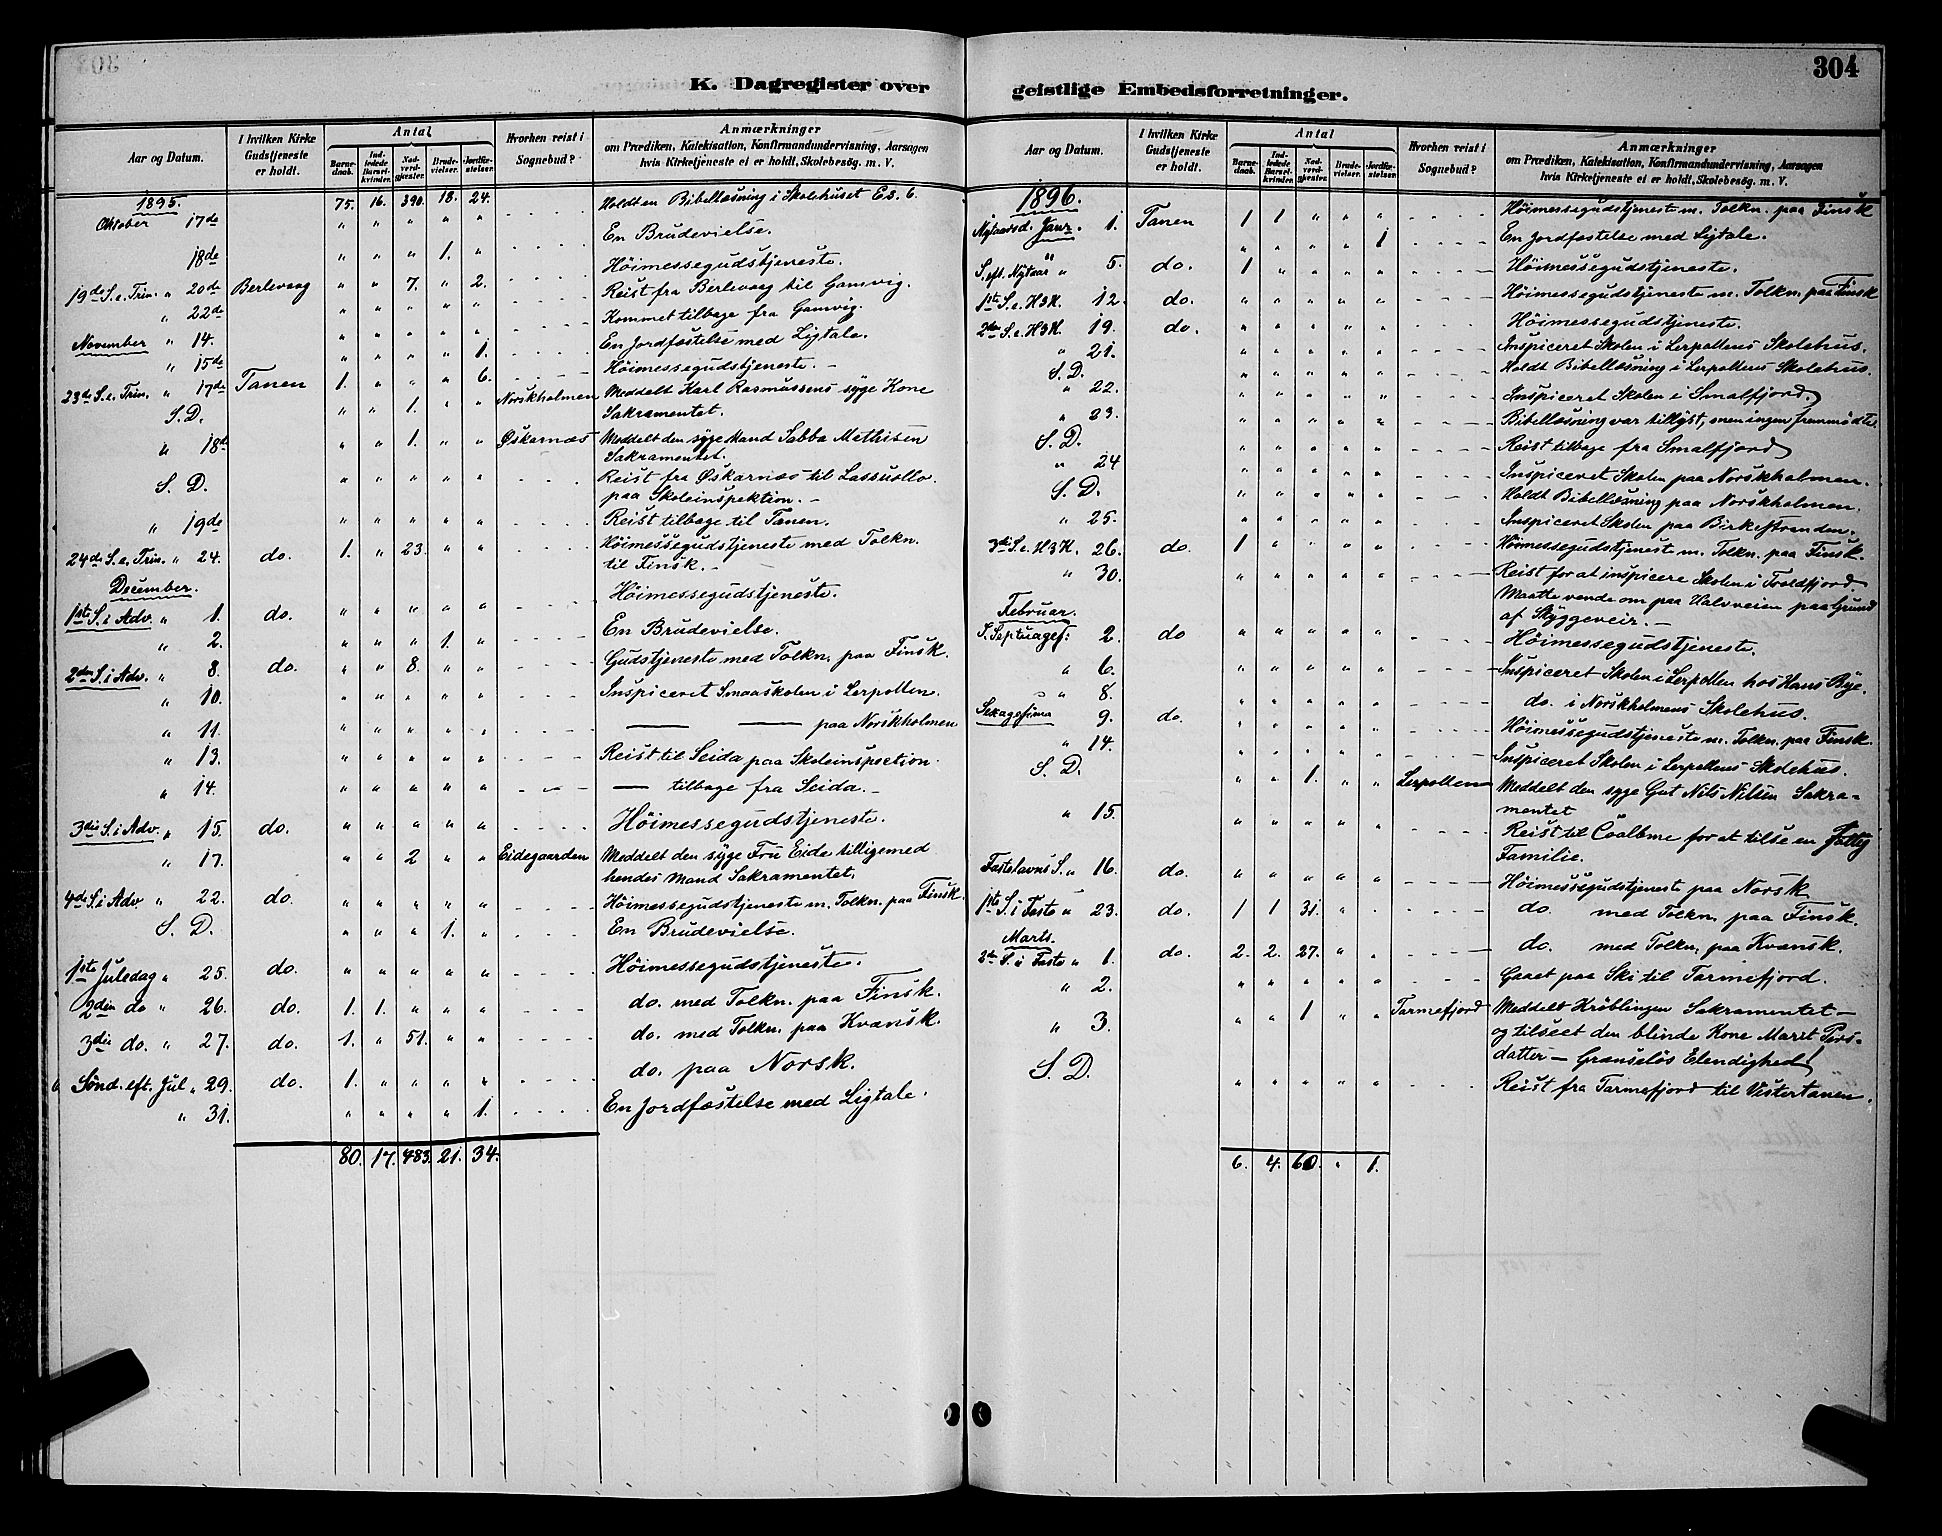 304
K. Dagregister over
geistlige Embedsforretninger.
Aar og Datum.
I hvilken Kirke Gudstjeneste er holdt.
Antal
Barnedaab.
Indledede Barselkvinder.
Nadverdgjester.
Brudevielser.
Jordfæstelser.
Hvorhen reist i Sognebud?
Anmærkninger
om Prædiken, Katekisation, Konfirmandundervisning, Aarsagen
hvis Kirketjeneste ei er holdt, Skolebesøg. m. V.
1895. 75. 16. 390. 18. 24.
Oktober 17de " " " " " Holdt en Bibellæsning i Skolehuset Es. 6.
18de " " " 1. " En Brudevielse.
19de S. e. Trin. " 20de Berlevaag " " 7. " 2. Höimessegudstjeneste.
" 22de " " " " " Reist fra Berlevaag til Gamvig.
November " 14. " " " " " Kommet tilbage fra Gamvig.
" 15de " " " " 1. En Jordfæstelse med Ligtale.
23de S. e. Trin. " 17de Tanen 1. " " " 6. Höimessegudstjeneste. -
S. D. " " 1. " " Norskholmen Meddelt Karl Rasmussens syge Kone
Sakramentet.
" 18de " " 1. " " Øskarnæs Meddelt den syge Mand Sabba Mathisen
Sakramentet.
S. D. " " " " " Reist fra Øskarnæs til Lassuollo
paa Skoleinspektion. -
" 19de " " " " " Reist tilbage til Tanen.
24de S. e. Trin. " 24. do. 1. " 23. " " Höimessegudstjeneste med Tolkn.
til Finsk. -
December.
1ste S. i Adv. " 1. do. " " " " " Höimessegudstjeneste.
" 2. " " " 1. " En Brudevielse.
2den S. i Adv. " 8. do. " " 8. " " Gudstjeneste med Tolkn. paa Finsk.
" 10. " " " " " Inspiceret Smaaskolen i Lerpollen.
" 11. " " " " " — — paa Norskholmen
" 13. " " " " " Reist til Seida paa Skoleinspection.
" 14. " " " " " — tilbage fra Seida. -
3die S. i Adv. " 15. do. " " " " " Höimessegudstjeneste.
" 17. " " 2 " " Eidegaarden Meddelt den syge Fru Eide tilligemed
hendes Mand Sakramentet.
4de S. i Adv. " 22. do. " " " " " Höimessegudstjeneste m. Tolkn. paa Finsk.
S. D. " " " 1. " En Brudevielse.
1ste Juledag " 25. do. " " " " " Höimessegudstjeneste.
2den do " 26. do. 1. 1. " " " do. med Tolkn. paa Finsk.
3die do. " 27. do. 1. " 51. " " do. med Tolkn. paa Kvænsk.
Sönd. eft. Jul " 29. do. 1. " " " " do. paa Norsk.
" 31. " " " " 1. En Jordfæstelse med Ligtale.
80. 17. 483. 21. 34.
Aar og Datum.
I hvilken Kirke Gudstjeneste er holdt.
Antal
Barnedaab.
Indledede Barselkvinder.
Nadverdgjester.
Brudevielser.
Jordfæstelser.
Hvorhen reist i Sognebud?
Anmærkninger
om Prædiken, Katekisation, Konfirmandundervisning, Aarsagen
hvis Kirketjeneste ei er holdt, Skolebesøg. m. V.
1896.
Nytaarsd. Janr. 1. Tanen 1 1 " " " Höimessegudstjeneste m. Tolkn. paa Finsk
" " " " 1 En Jordfæstelse med Ligtale.
S. eft. Nytaar " 5. do. 1 " " " " Höimessegudstjeneste.
1ste S. e. H3K. 12. do. " " " " " Höimessegudstjeneste m. Tolkn. paa Finsk
2den S. e. H3K. 19. do. " " " " " Höimessegudstjeneste.
" 21. " " " " " Inspiceret Skolen i Lerpollens Skolehus.
S. D. " " " " " Holdt Bibellæsning i Lerpollens Skolehus.
" 22. " " " " " Inspiceret Skolen i Smalfjord.
" 23. " " " " " Bibellæsning var tillyst, men ingen fremmödte.
S. D. " " " " " Reist tilbage fra Smalfjord
" 24 " " " " " Inspiceret Skolen paa Norskholmen.
S. D. " " " " " Holdt Bibellæsning paa Norskholmen.
" 25. " " " " " Inspiceret Skolen paa Birkestranden.
3die S. e. H3K. 26. do. 1 " " " " Höimessegudstjeneste m. Tolkn. paa Finsk.
" 30. " " " " " Reist for at inspicere Skolen i Troldfjord
Maatte vende om paa Halvveien paa Grund
af Styggeveir. -
Februar.
S. Septuages: 2. do " " " " " Höimessegudstjeneste.
" 6. " " " " " Inspiceret Skolen i Lerpollen hos Hans Bye.
" 8. " " " " " do. i Norskholmens Skolehus.
Sexagesima 9. do. " " " " " Höimessegudstjeneste m. Tolkn. paa Finsk.
" 14. " " " " " Inspiceret Skolen i Lerpollens Skolehus.
S. D. " " 1. " " Lerpollen Meddelt den syge Gut Nils Nilsen Sakra-
mentet
" 15. " " " " " Reist til for at tilse en fattig
Familie.
Fastelavns S. " 16. do. " " " " " Höimessegudstjeneste paa Norsk
1ste S. i Faste " 23. do. 1 1 31. " " do. med Tolkn. paa Finsk.
Marts.
2den S. i Faste " 1. do. 2. 2. 27. " " do. med Tolkn. paa Kvænsk.
" 2. " " " " " Gaaet paa Ski til Tarmefjord.
" 3. " " 1 " " Tarmefjord Meddelt Kröblingen Sakramentet -
og tilseet den blinde Kone Marit Pers-
datter - Grændselös Elendighed!
S. D. " " " " " Reist fra Tarmefjord til Vestertanen.
6. 4. 60. " 1.